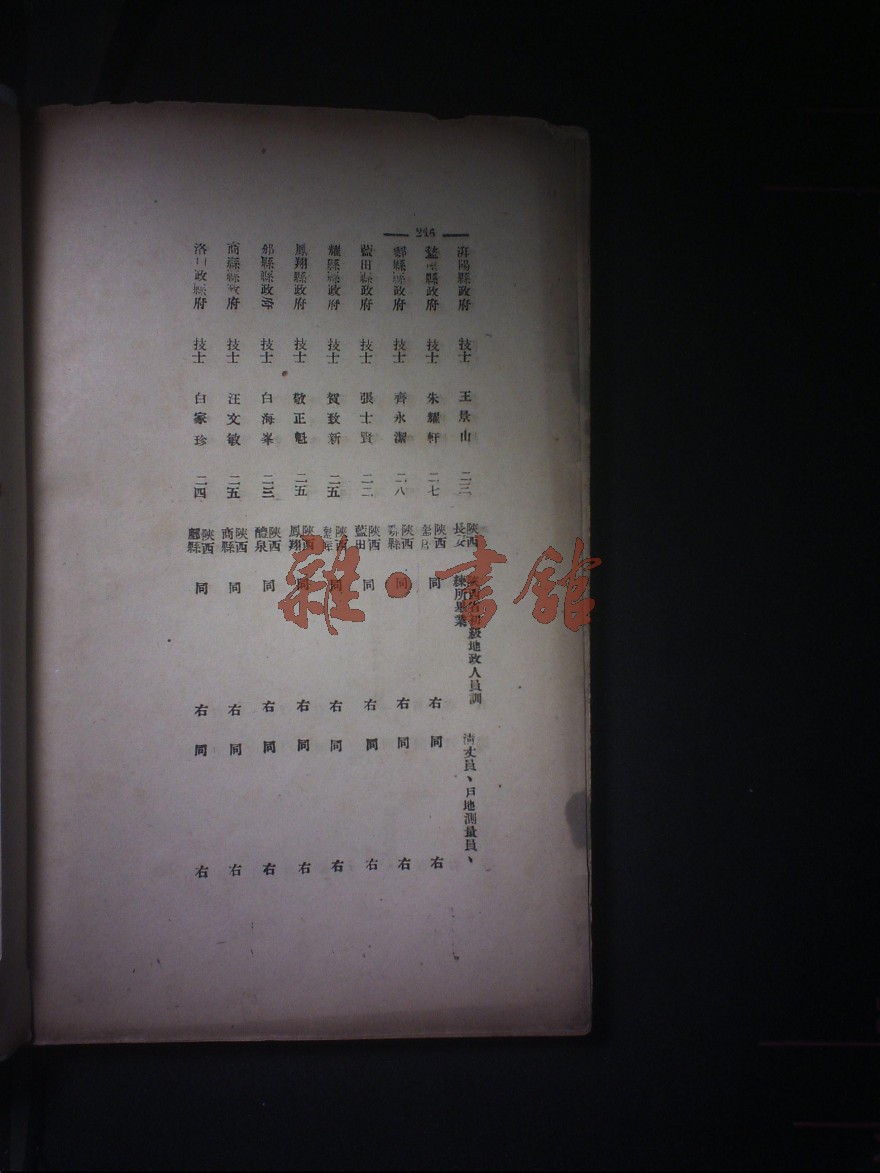 246
汧陽縣政府 技士 王景山 二三 陝西長安 陝西省初級地政人員訓練所畢業 清丈員、戶地測量員、
盩厔縣政府 技士 朱耀軒 二七 同右 同右
鄠縣縣政府 技士 齊永潔 二八 陝西 同右 同右
藍田縣政府 技士 張士賢 二二 陝西藍田 同右 同右
耀縣縣政府 技士 賀致新 二五 陝西 同右 同右
鳳翔縣政府 技士 敬正魁 二五 陝西鳳翔 同右 同右
縣縣政府 技士 白海峯 二三 陝西醴泉 同右 同右
商縣縣政府 技士 汪文敏 二五 陝西商縣 同右 同右
洛 政縣府 技士 白家珍 二四 陝西酈縣 同右 同右
雜·書館